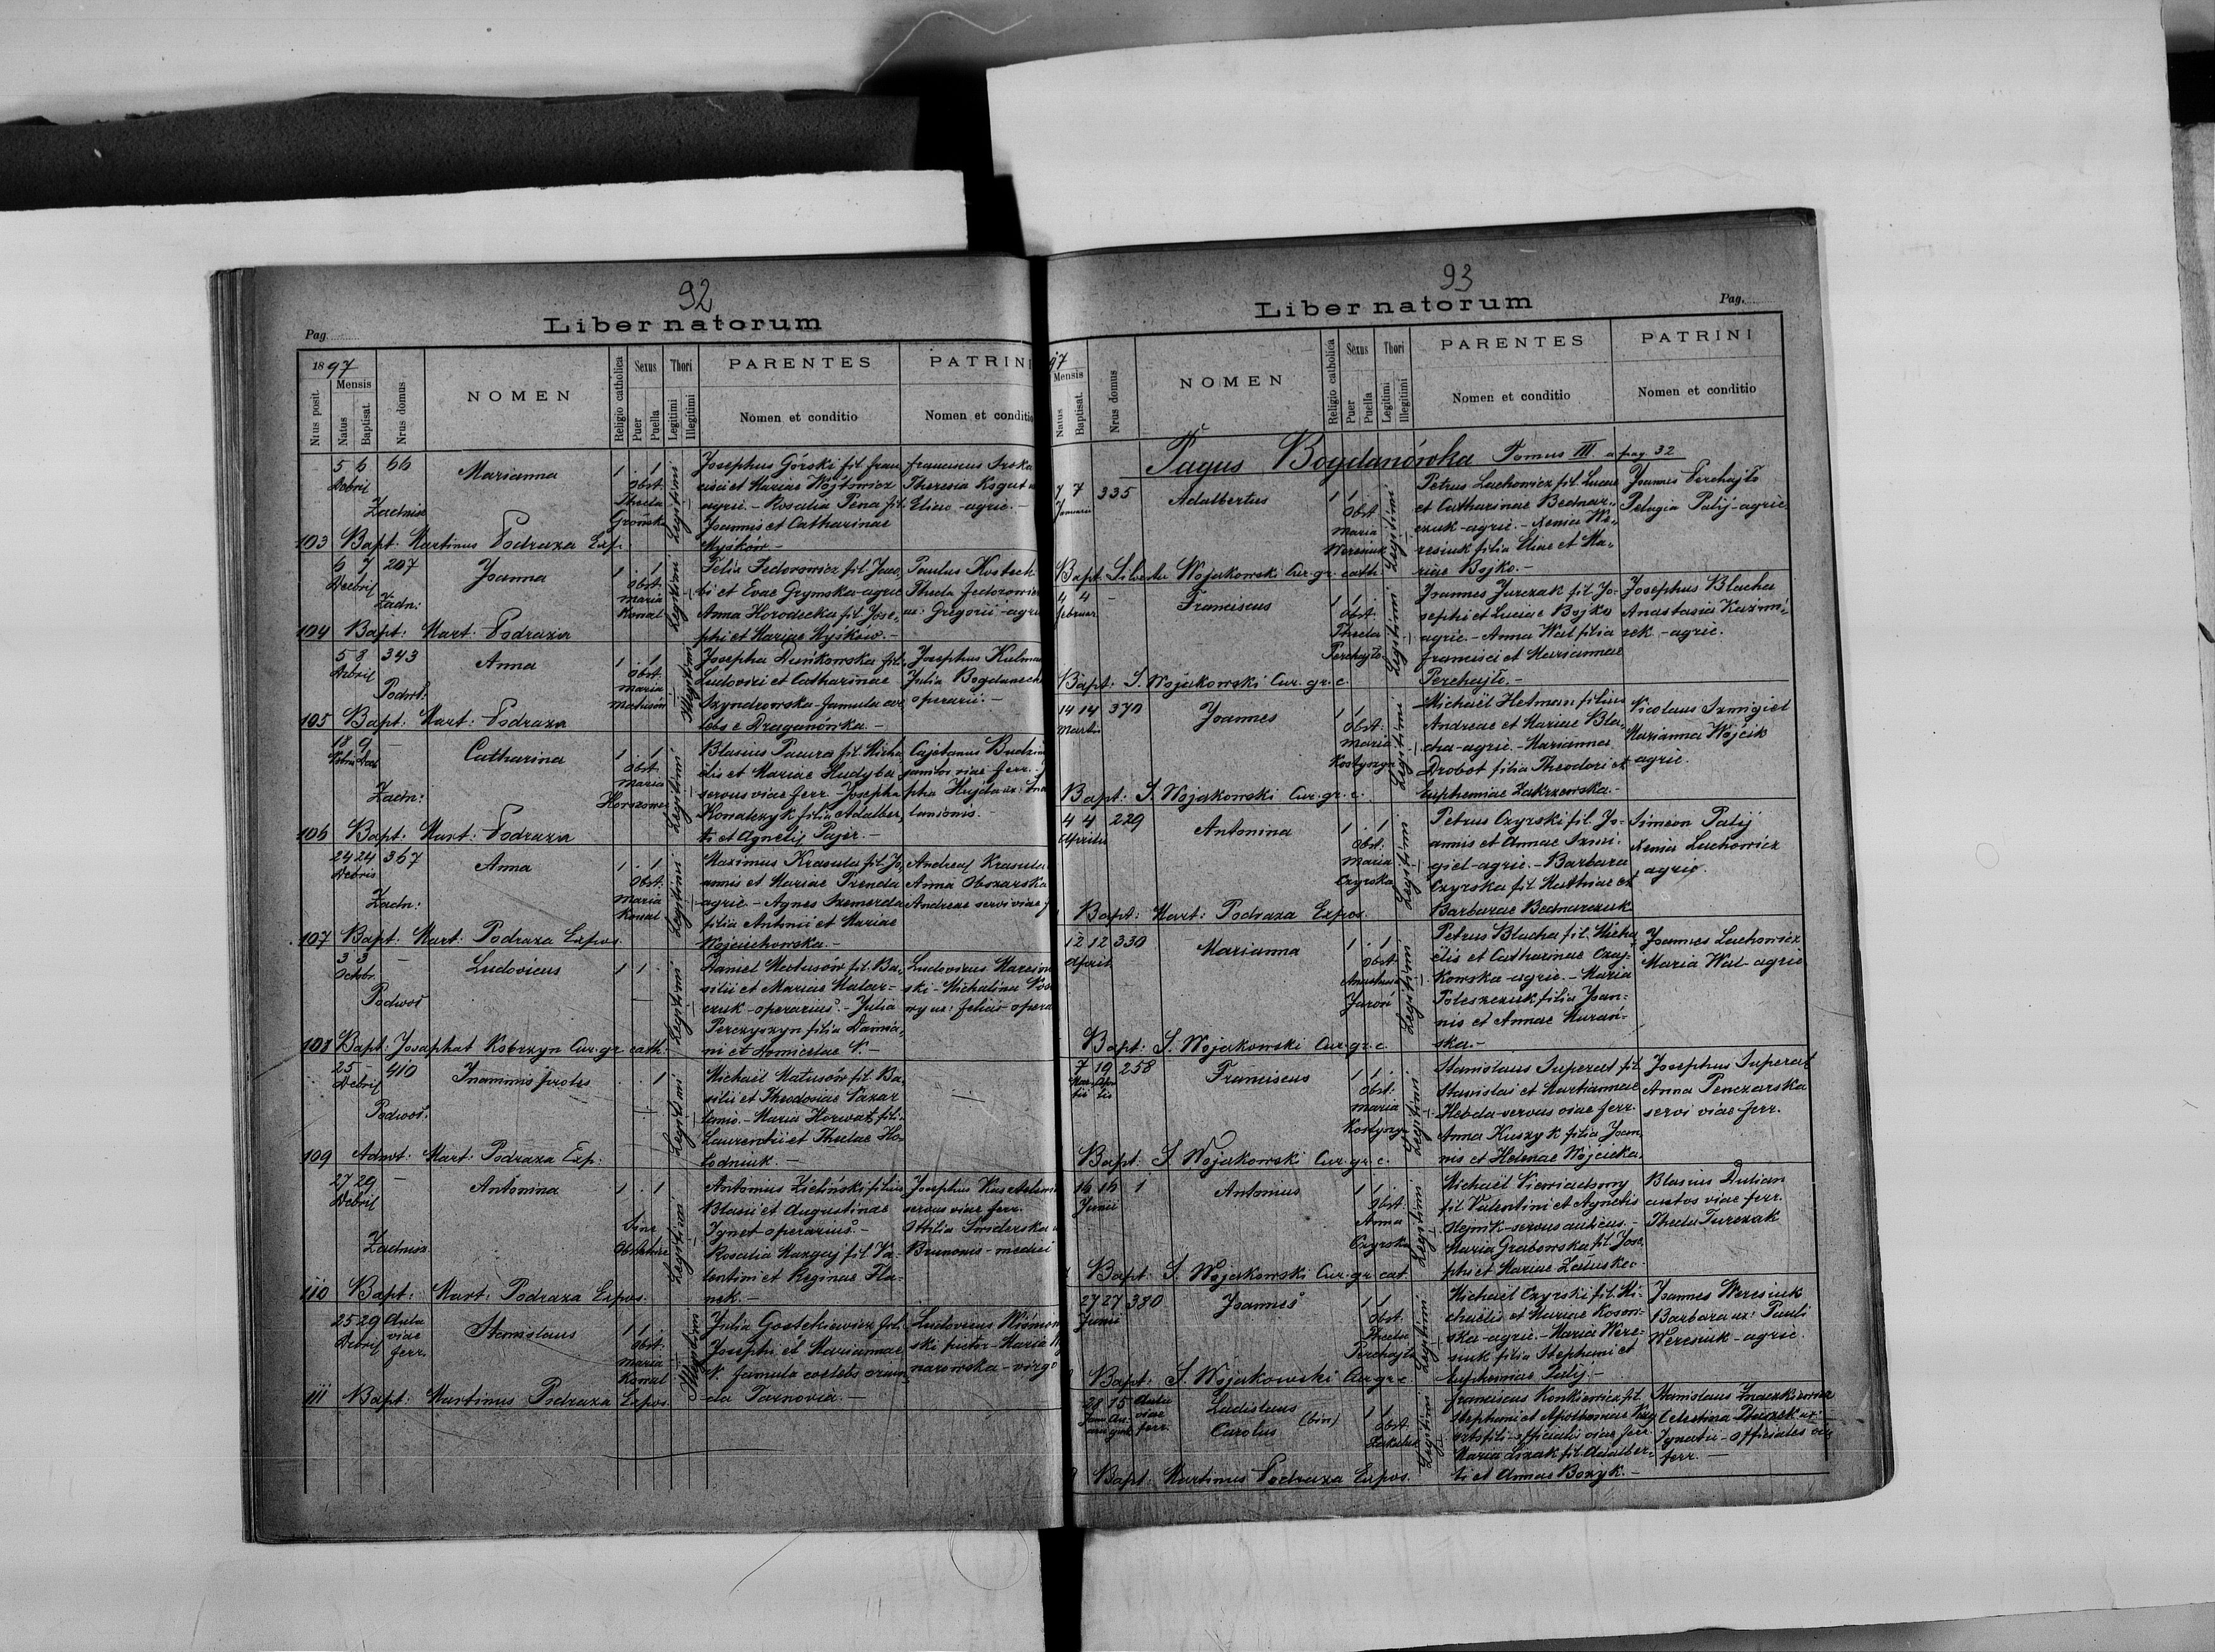 92
Liber natorum
Pag.
1897
Mensis
Nrus posit.
Natus
Baptisat.
Nrus domus
NOMEN
Religio catholica
Sexus
Puer
Puella
Thori
Legitimi
Illegitimi
PARENTES
Nomen et conditio
PATRINI
Nomen et conditio
5 6 66
Marianna
1 . 1
Obst.
Thecla
Legitimi
Zadnisz
Josephus Górski fil. Fran
cisci et Mariae Wojtowicz
agric. - Rosalia Pena fil.
Joannis et Catharinae
Myśków -
Franciscus
Theresia Kogut
Eliae - agric. -
103 Bapt. Martinus Podraza Exp.
6 7 207
Zadn:
Joanna
1 . 1
Obst.
Maria
Kowal
Legitimi
Felix Fedorowicz fil. Jaco,
bi et Evae Grymska - agric
Anna Horodecka fil. Jose,
phi et Mariae Myśków. -
Paulus
Thecla Fedorowicz
ux: Gregorii - agric
104 Bapt: Mart: Podraza
5 8 343
Anna
1 . 1
Obst.
Maria
Matusów
Illegitimi
Josepha Duńkowska fil.
Ludovici et Catharinae
Szyndrowska - famula coe,
lebs e Draganówka. -
Josephus
Julia
operarii. -
105 Bapt: Mart: Podraza
18 9 -
Zadn:
Catharina
1 . 1
Obst.
Maria
Legitimi
Blasius Pacura fil. Micha,
elis et Mariae Hudyba
servus viae ferr. - Josepha
Konatczyk filia Adalber,
ti et Agnetis Pajer. -
Cajetanus
janitor viae ferr. -
106 Bapt: Mart: Podraza
24 24 367
Zadn:
Anna
1 . 1
Obst.
Maria
Kowal
Legitimi
Maximus Krasula fil. Jo,
annis et Mariae Prenda
agric. - Agnes Szemerda
filia Antonii et Mariae
Wojciechowska. -
Andreas Krasula
Anna Obszarska
Andreae servi viae
107 Bapt: Mart: Podraza Expos.
3 3 -
Octobr.
Podwoł
Ludovicus
1 1 .
Legitimi
Daniel Matusów fil. Ba,
silii et Mariae Malar=
czuk - operarius. - Julia
Perczyszyn filia Damia,
ni et Domicelae N. -
Ludovicus
ski - Michalina
ux: Felicis -
108 Bapt: Josaphat Kobrzyn Cur. gr. cath.
25 - 410
Podwoł.
Inanimis proles
. . 1
Legitimi
Michaël Matusów fil. Ba,
silii et Theodosiae Łazar
lanio. - Maria Horwat fili=
Laurentii et Theclae Ho=
łodniuk. -
109 Mart: Podraza Exp:
27 29 -
Zadnisz.
Antonina
1 . 1
Sine
Obstetrice
Legitimi
Antonius Zieliński filius
Blasii et Augustinae
Ignet - operarius. -
Rosalia Mazgaj fil. Va=
lentini et Reginae Fla=
nek. -
Josephus
servus viae ferr.
Ottilia Świderska
Brunonis - medici
110 Bapt: Mart: Podraza Expos.
25 29 Aula
viae
ferr.
Stanislaus
1 1 .
Obst.
Maria
Kowal
Illegitimi
Julia Gostkiewicz fil.
Josephi et Mariannae
N. famula coelebs oriun=
da Tarnovia. -
Ludovicus
ski pictor - Maria
narowska - virgo
111 Bapt: Martinus Podraza Expos.
93
Liber natorum
Pag.
97
Mensis
Natus
Baptisat.
Nrus domus
NOMEN
Religio catholica
Sexus
Puer
Puella
Thori
Legitimi
Illegitimi
PARENTES
Nomen et conditio
PATRINI
Nomen et conditio
Pagus Bogdanówka Tomus III. a pag 32
7 7 335
Januarii
Adalbertus
1 1 .
Obst.
Maria
Weresiuk
Legitimi
Petrus Lachowicz fil. Lucae
et Catharinae Bednar=
czuk - agric. - Xenia We=
resiuk filia Eliae et Ma=
riae Bojko. -
Joannes Perchajło
Pelagia Palij - agric.
Bapt. Silvester Wojakowski Cur. gr. cath.
4 4 -
Februar.
Franciscus
1 1 .
Obst.
Thecla
Perchajło
Legitimi
Joannes Jurczak fil. Jo=
sephi et Luciae Bojko
agric. - Anna Wal filia
Francisci et Mariannae
Perchajło. -
Josephus Blacha
Anastasia Kuźmi=
- agric.
Bapt: S. Wojakowski Cur. gr. c.
14 14 370
Martii
Joannes
1 1 .
Obst.
Maria
Kostyszyn
Legitimi
Michaël Hetman filius
Andreae et Mariae Bla=
cha - agric. - Marianna
Drobot filia Theodori et
Euphemiae Zakrzewska. -
Nicolaus Szmigiel
Marianna Wójcik
agric.
Bapt: S. Wojakowski Cur. gr. c.
4 4 229
Aprilis
Antonina
1 . 1
Obst.
Maria
Czyrska
Legitimi
Petrus Czyrski fil. Jo=
annis et Annae Szmi=
giel - agric. - Barbara
Czyrska fil. Mathiae et
Barbarae Bednarczuk
Simeon Palij
Xenia Lachowicz
agric.
Bapt: Mart: Podraza Expos.
12 12 330
Aprilis
Marianna
1 . 1
Obst.
Anastasia
Jaroń
Legitimi
Petrus Blacha fil. Micha=
ëlis et Catharinae Czaj=
kowska - agric. - Maria
Poleszczuk filia Joan=
nis et Annae Murań=
ska. -
Joannes Lachowicz
Maria Wal - agric
Bapt: S. Wojakowski Cur. gr. c.
7 19 258
Franciscus
1 1 .
Obst.
Maria
Kostyszyn
Legitimi
Stanislaus Superat fil.
Stanislai et Mariannae
Hebda - servus viae ferr.
Anna Kuszyk filia Joan,
nis et Helenae Wójcicka.
Josephus Superat
Anna Penczarska
servi viae ferr.
Bapt: S. Wojakowski Cur. gr. c.
16 16 1
Junii
Antonius
1 1 .
Obst.
Anna
Czyrska
Legitimi
Michaël Niewiadomy
fil. Valentini et Agnetis
Olejnik - servus aulicus. -
Maria Grabowska fil. Jose,
phi et Mariae
Blasius Dulian
custos viae ferr.
Thecla Jurczak
Bapt: S. Wojakowski Cur. gr. cat.
27 27 380
Junii
Joannes
1 1 .
Obst.
Thecla
Perchajło
Legitimi
Michaël Czyrski fil. Mi=
chaëlis et Mariae Koson=
ska - agric. - Maria Were=
siuk filia Stephani et
Euphemiae Palij. -
Joannes Weresiuk
Barbara ux: Pauli
Weresiuk - agric.
Bapt: S. Wojakowski Cur. gr. c.
28 15 Aula
viae
ferr.
Ladislaus
Carolus (bin)
1 1 .
Obst.
Legitimi
Franciscus Konkiewicz fil.
Stephani et Apolloniae
officialis viae ferr.
Maria Liszak fil. Adalber=
ti et Annae Bozyk. -
Stanislaus
Celestina
Ignatii - officiales
ferr.
Bapt: Martinus Podraza Expos.